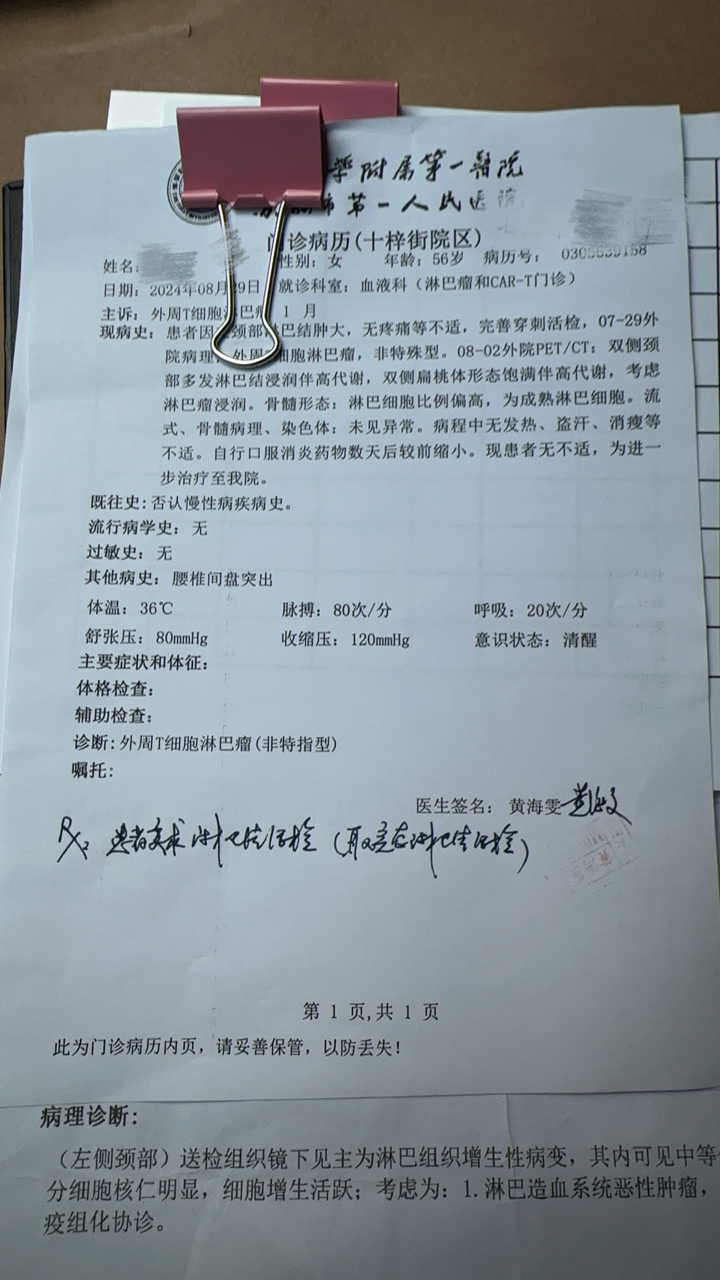 学附属第一醫院
市第一人民医院
门诊病历(十梓街院区)
姓名: 性别: 女 年龄: 56岁 病历号:
日期: 2024年08月29日 就诊科室: 血液科（淋巴瘤和CAR-T门诊）
主诉: 外周T细胞淋巴瘤 1 月
现病史: 患者因 颈部淋巴结肿大, 无疼痛等不适, 完善穿刺活检, 07-29外
院病理: 外周 细胞淋巴瘤, 非特殊型。08-02外院PET/CT: 双侧颈
部多发淋巴结浸润伴高代谢, 双侧扁桃体形态饱满伴高代谢, 考虑
淋巴瘤浸润。骨髓形态: 淋巴细胞比例偏高, 为成熟淋巴细胞。流
式、骨髓病理、染色体: 未见异常。病程中无发热、盗汗、消瘦等
不适。自行口服消炎药物数天后较前缩小。现患者无不适, 为进一
步治疗至我院。
既往史: 否认慢性病疾病史。
流行病学史: 无
过敏史: 无
其他病史: 腰椎间盘突出
体温: 36℃ 脉搏: 80次/分 呼吸: 20次/分
舒张压: 80mmHg 收缩压: 120mmHg 意识状态: 清醒
主要症状和体征:
体格检查:
辅助检查:
诊断: 外周T细胞淋巴瘤(非特指型)
嘱托:
医生签名: 黄海雯
Rx: 患者要求淋巴结活检 ( 淋巴结活检)
第 1 页,共 1 页
此为门诊病历内页, 请妥善保管, 以防丢失!
病理诊断:
（左侧颈部）送检组织镜下见主为淋巴组织增生性病变, 其内可见中等
分细胞核仁明显, 细胞增生活跃; 考虑为: 1.淋巴造血系统恶性肿瘤,
疫组化协诊。